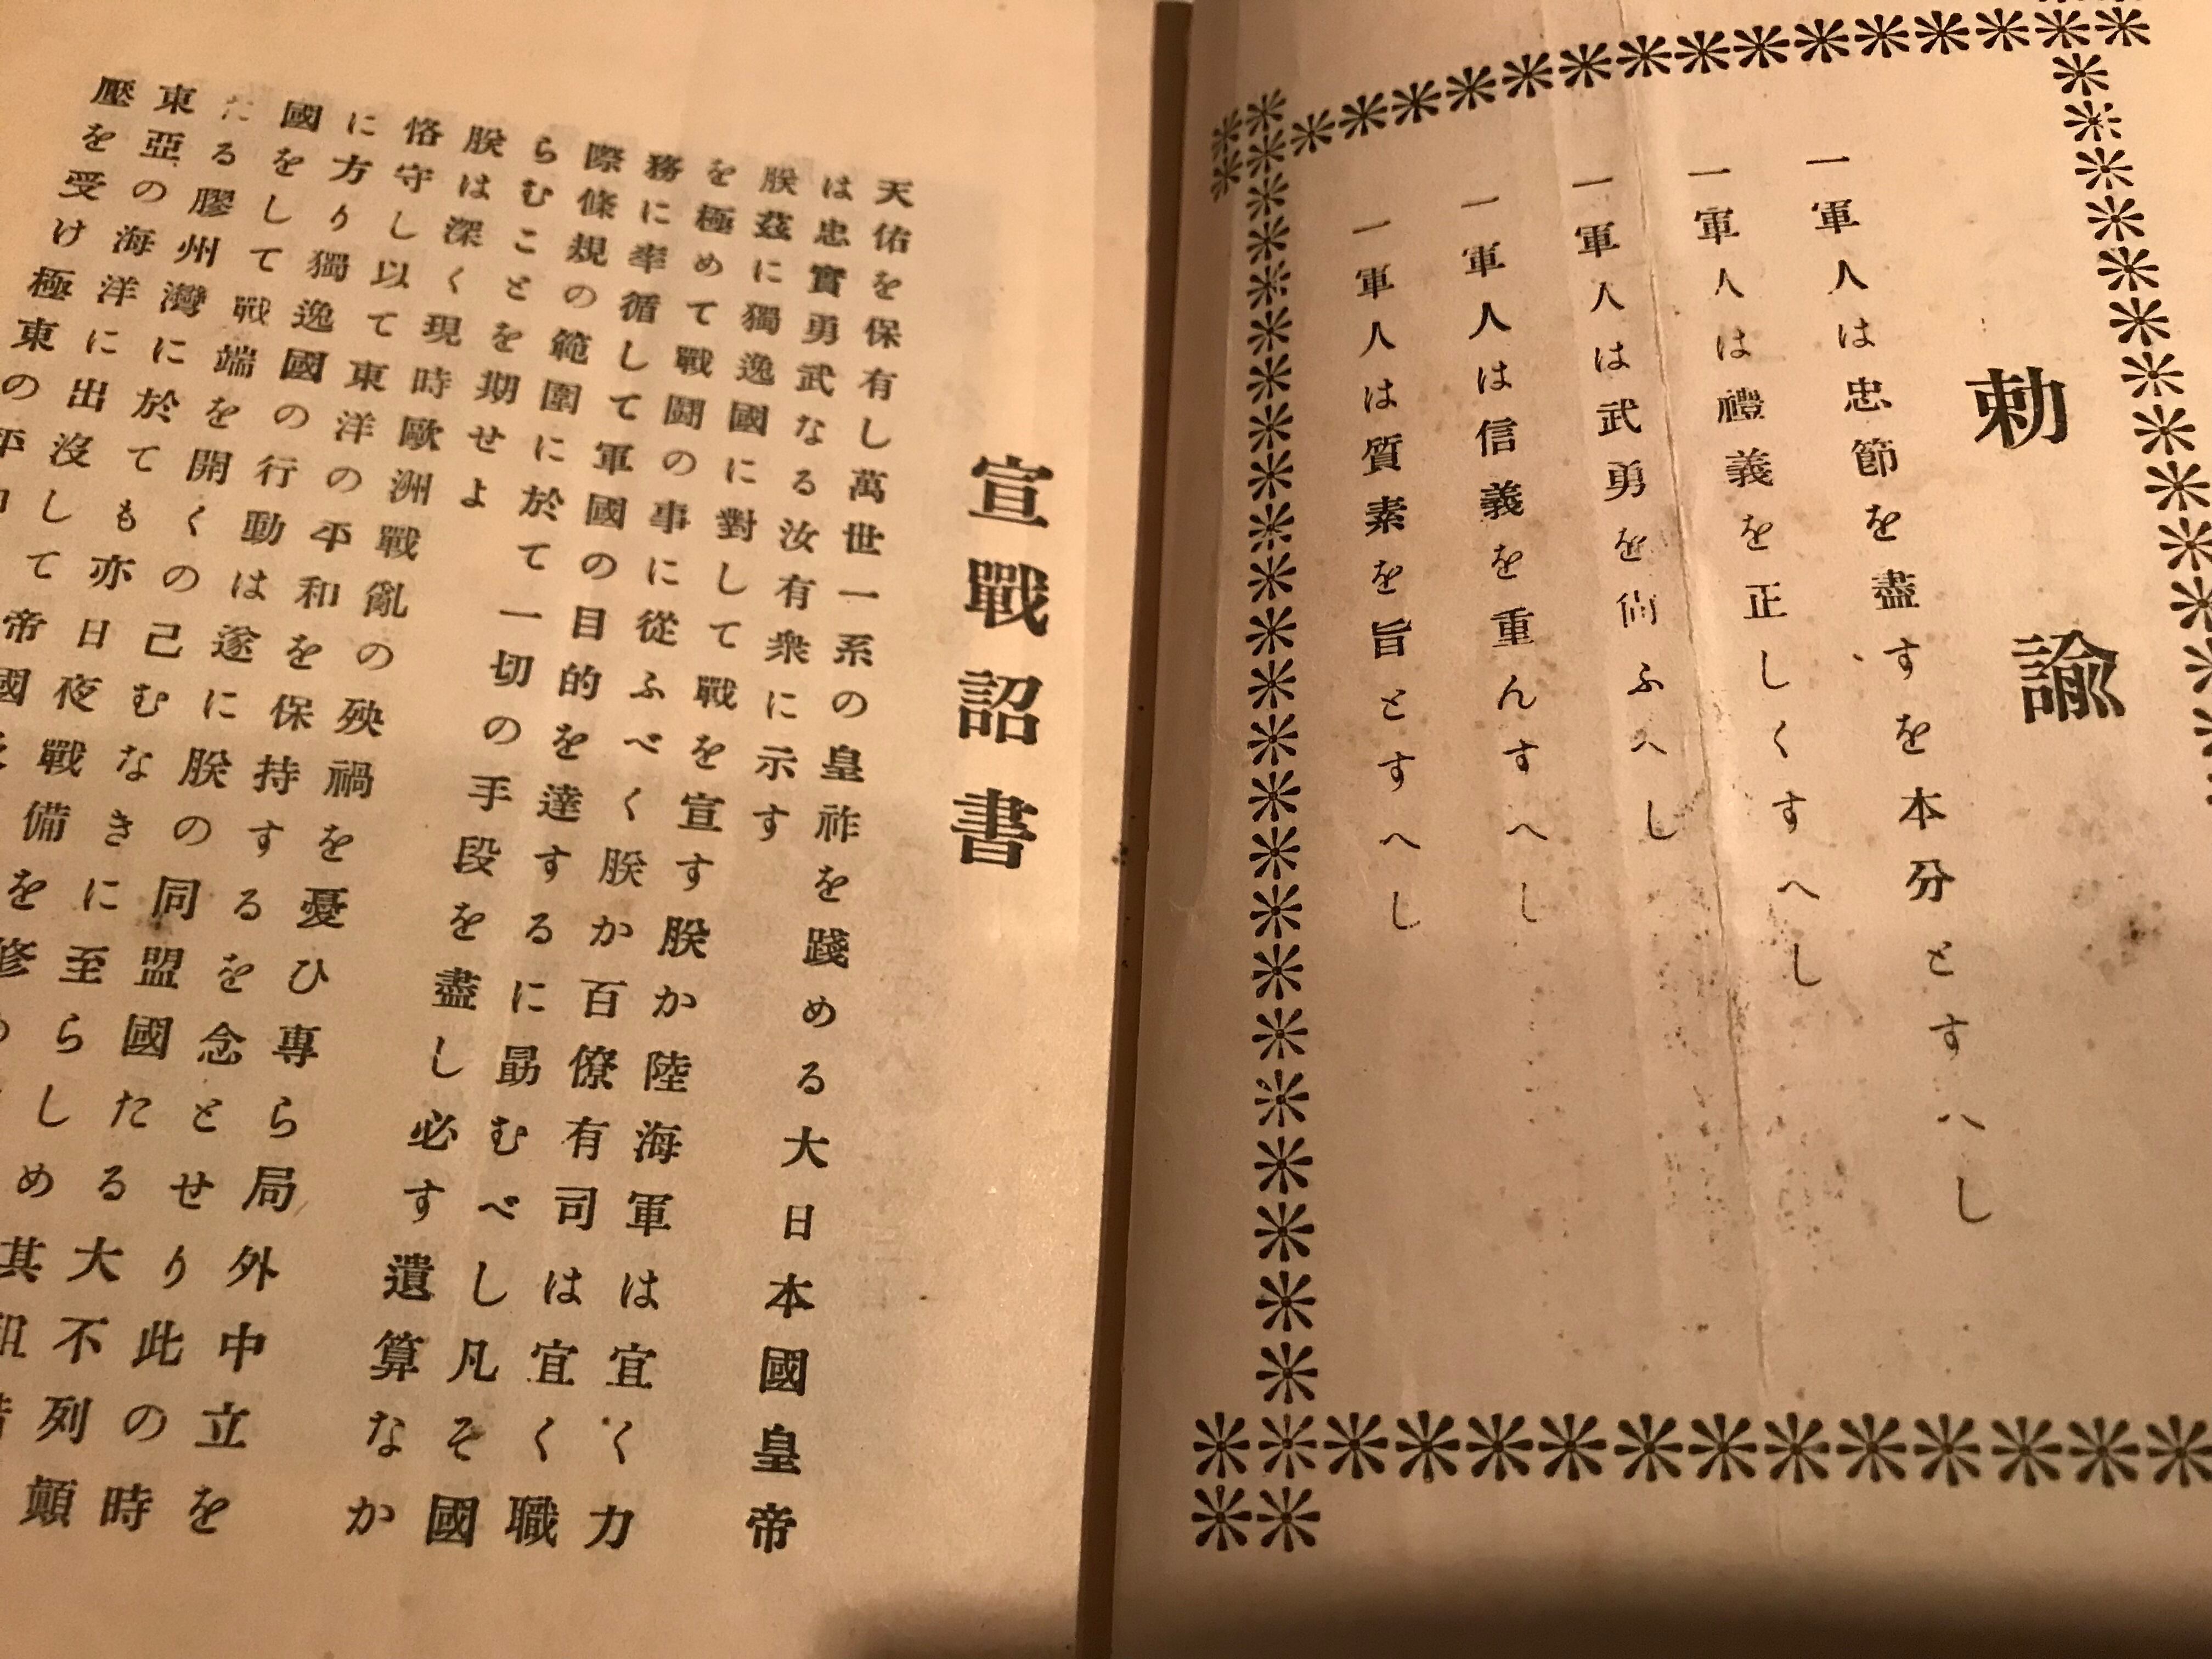 勅諭
一軍人は忠節を盡すを本分とすへし
一軍人は禮義を正しくすへし
一軍人は武勇を尙ふへし
一軍人は信義を重んすへし
一軍人は質素を旨とすへし
宣戰詔書
天佑を保有し萬世一系の皇祚を踐める大日本國皇帝
は忠實勇武なる汝有衆に示す
朕茲に獨逸國に對して戰を宣す朕か陸海軍は宜く力
を極めて戰鬪の事に從ふべく朕か百僚有司は宜く職
務に率循して軍國の目的を達するに勗むべし凡そ國
際條規の範圍に於て一切の手段を盡し必す遺算なか
らむことを期せよ
朕は深く現時歐洲戰亂の殃禍を憂ひ專ら局外中立を
恪守し以て東洋の平和を保持するを念とせり此の時
に方り獨逸國の行動は遂に朕の同盟國たる大不列顛
國をして戰端を開くの己むなきに至らしめ其
たる膠州灣に於ても亦日夜戰備を修
東亞の海洋に出沒して帝國
壓を受け極東の平